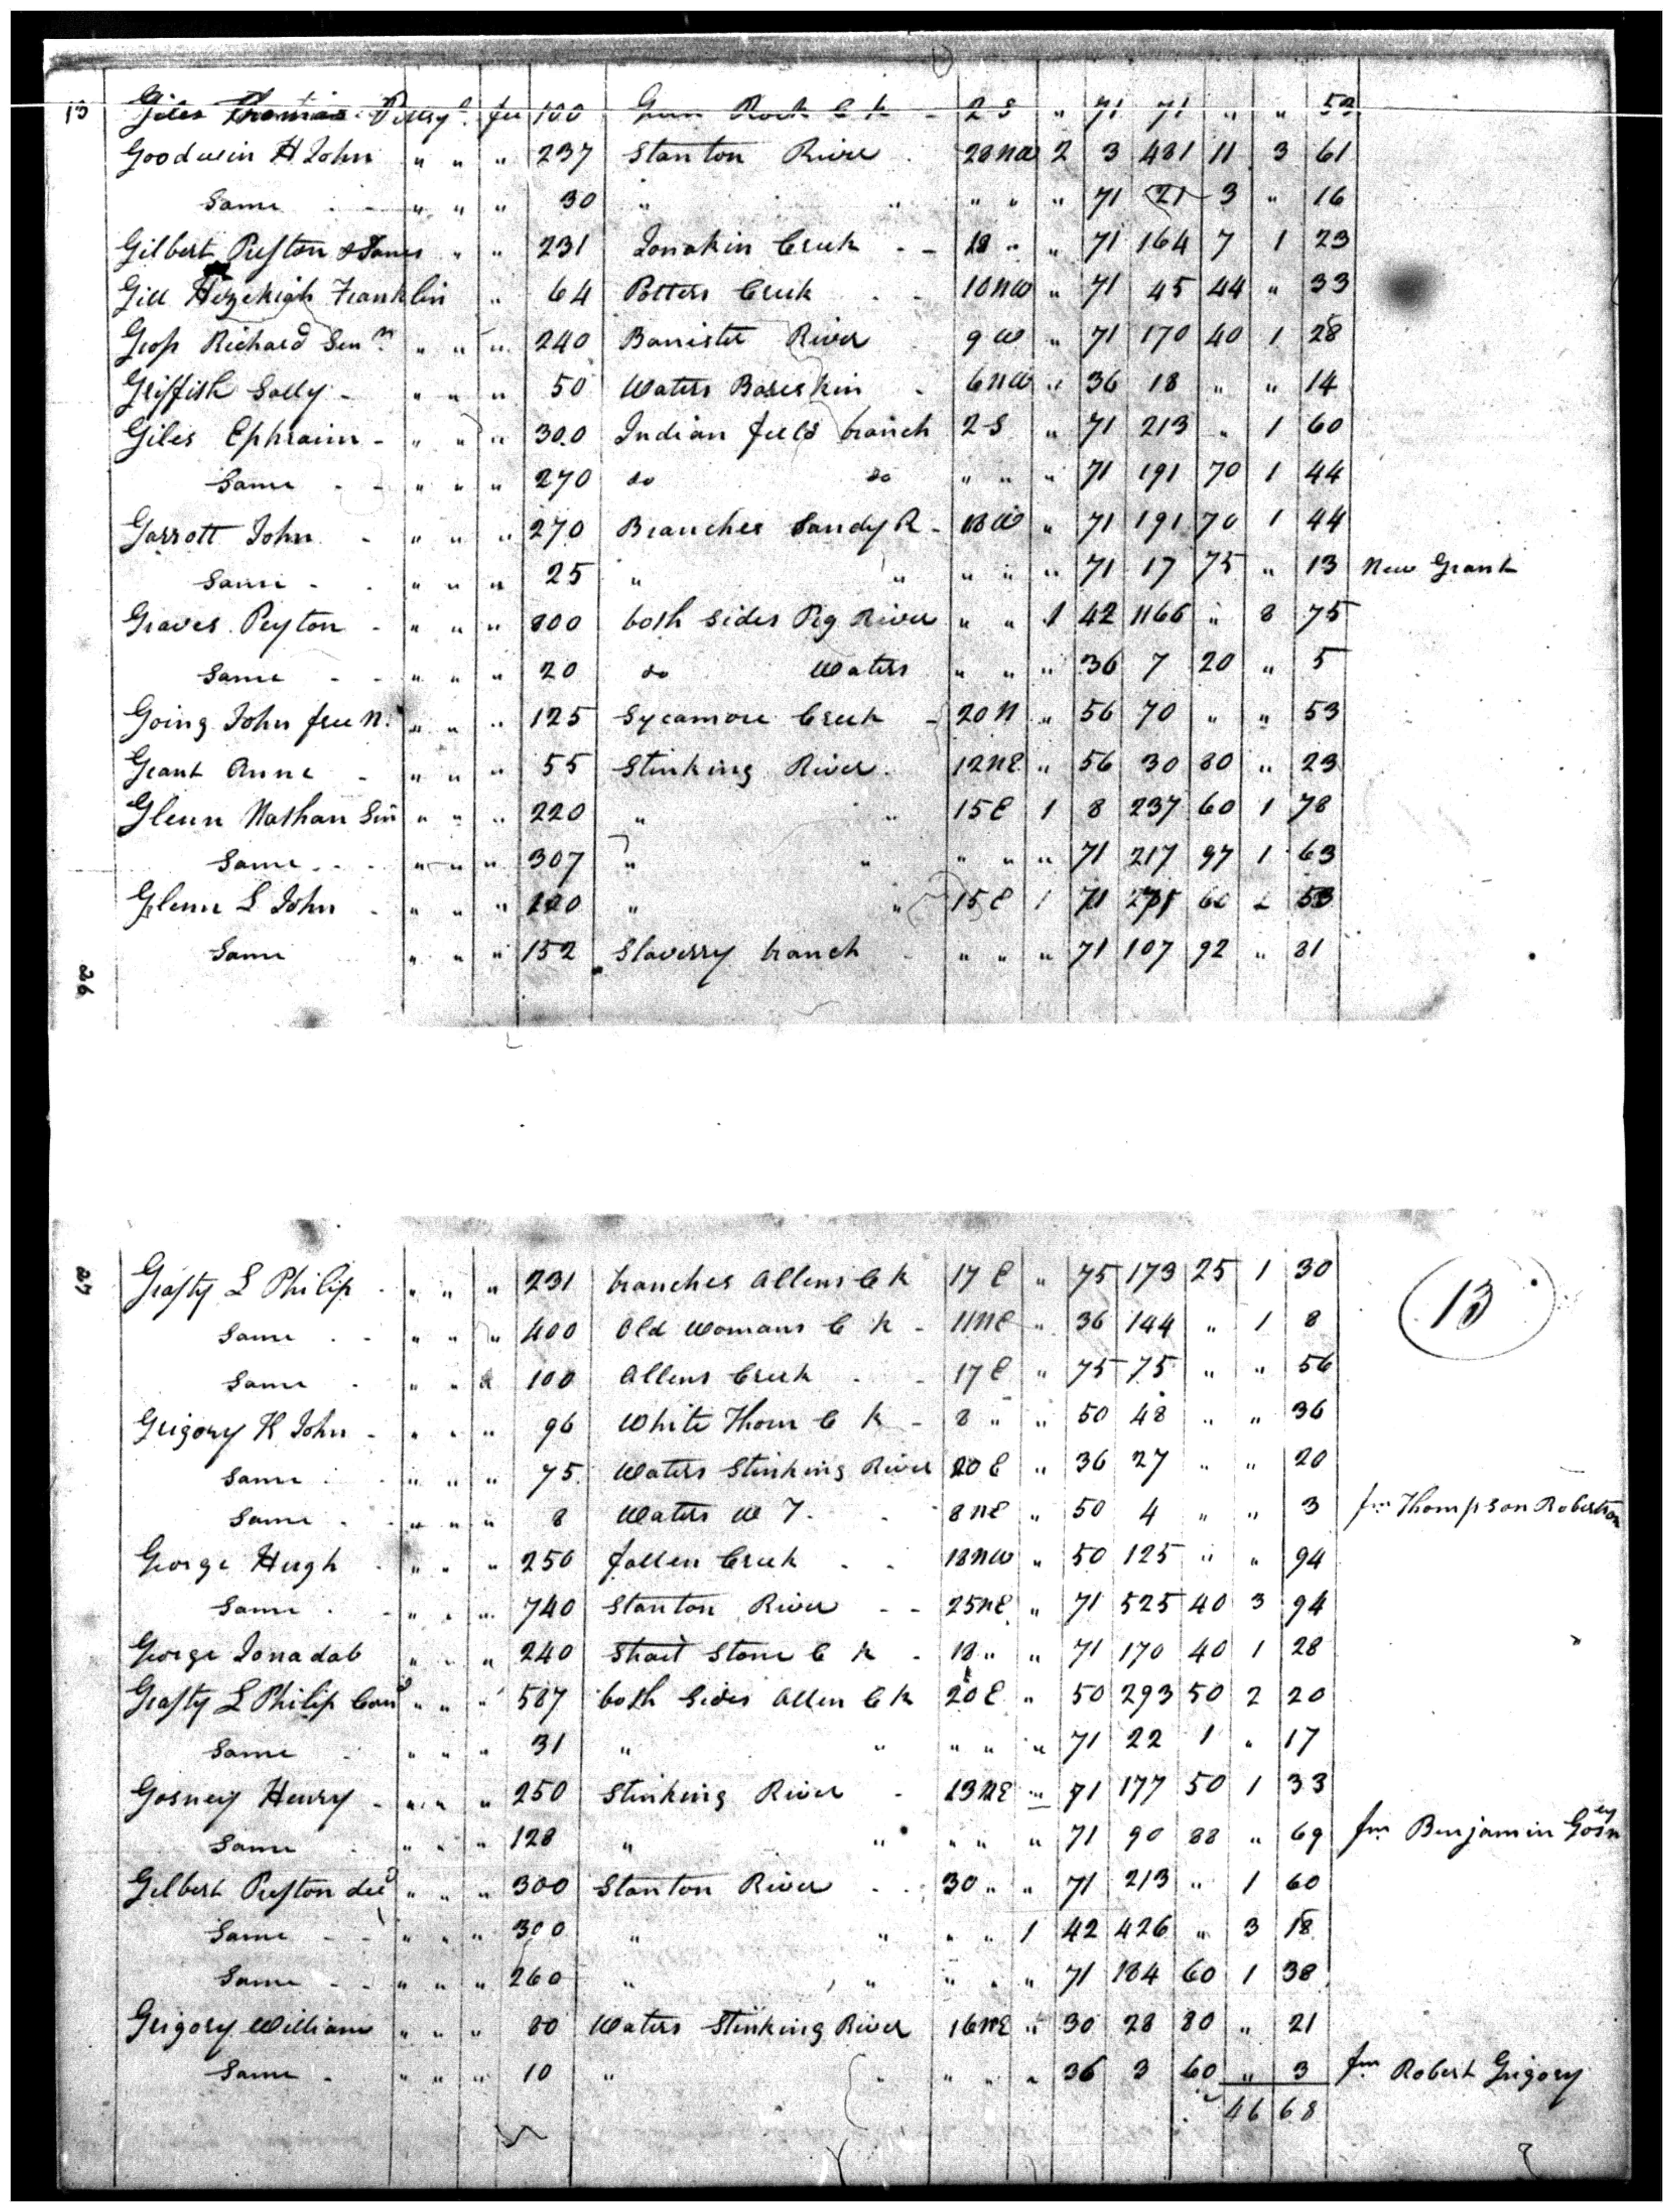 13 Giles Thomas Pittsyl. fee 100 2 S " 71 71 " " 53
Goodwin H John " " " 237 Stanton River 28 NW 2 3 481 11 3 61
Same " " " 30 " " " " " 71 21 3 " 16
Gilbert Preston & James " " 231 Jonakin Creek 18 " " 71 164 7 1 23
Gill Hezekiah Franklin " 64 Potters Creek 10 NW " 71 45 44 " 33
Goss Richard Senr " " " 240 Banister River 9 W " 71 170 40 1 28
Griffith Sally " " " 50 Waters Bareskin 6 NW " 36 18 " " 14
Giles Ephraim " " " 300 Indian field branch 2 S " 71 213 " 1 60
Same " " " 270 do do " " " 71 191 70 1 44
Garrott John " " " 270 Branches Sandy R 18 W " 71 191 70 1 44
Same " " " 25 " " " " " 71 17 75 " 13 New Grant
Graves Peyton " " " 800 both sides Pig River " " 1 42 1166 " 8 75
Same " " " 20 do Waters " " " 36 7 20 " 5
Going John free N. " " " 125 Sycamore Creek 20 N " 56 70 " " 53
Grant Anne " " " 55 Stinking River 12 NE " 56 30 80 " 23
Glenn Nathan Sen " " " 220 " " 15 E 1 8 237 60 1 78
Same " " " 307 " " " " " 71 217 97 1 63
Glenn L John " " " " " 15 E 1 71 60
Same " " " 152 Slaverry branch " " " 71 107 92 " 81
26
27
Grafty L Philip " " " 231 branches Allens C k 17 E " 75 173 25 1 30
13
Same " " " 400 Old Womans C k 11 NE " 36 144 " 1 8
Same " " " 100 Allens Creek 17 E " 75 75 " " 56
Grigory H John " " " 96 White Thorn C k 8 " " 50 48 " " 36
Same " " " 75 Waters Stinking River 20 E " 36 27 " " 20
Same " " " 8 Waters W T. 8 NE " 50 4 " " 3 fm Thompson Robertson
George Hugh " " " 250 fallen Creek 18 NW " 50 125 " " 94
Same " " " 740 Stanton River 25 NE " 71 525 40 3 94
George Jonadab " " " 240 Strait Stone C k 18 " " 71 170 40 1 28
Grafty L Philip Cond " " " 587 both Sides Allen C k 20 E " 50 293 50 2 20
Same " " " 31 " " " " " 71 22 1 " 17
Gosney Henry " " " 250 Stinking River 13 NE " 71 177 50 1 33
Same " " " 128 " " " " " 71 90 88 " 69 fm Benjamin Gosney
Gilbert Preston decd " " " 300 Stanton River 30 " " 71 213 " 1 60
Same " " " 300 " " " " 1 42 426 " 3 18
Same " " " 260 " " " " " 71 184 60 1 38
Grigory William " " " 80 Waters Stinking River 16 NE " 36 28 80 " 21
Same " " " 10 " " " " " 36 3 60 " 3 fm Robert Grigory
46 68